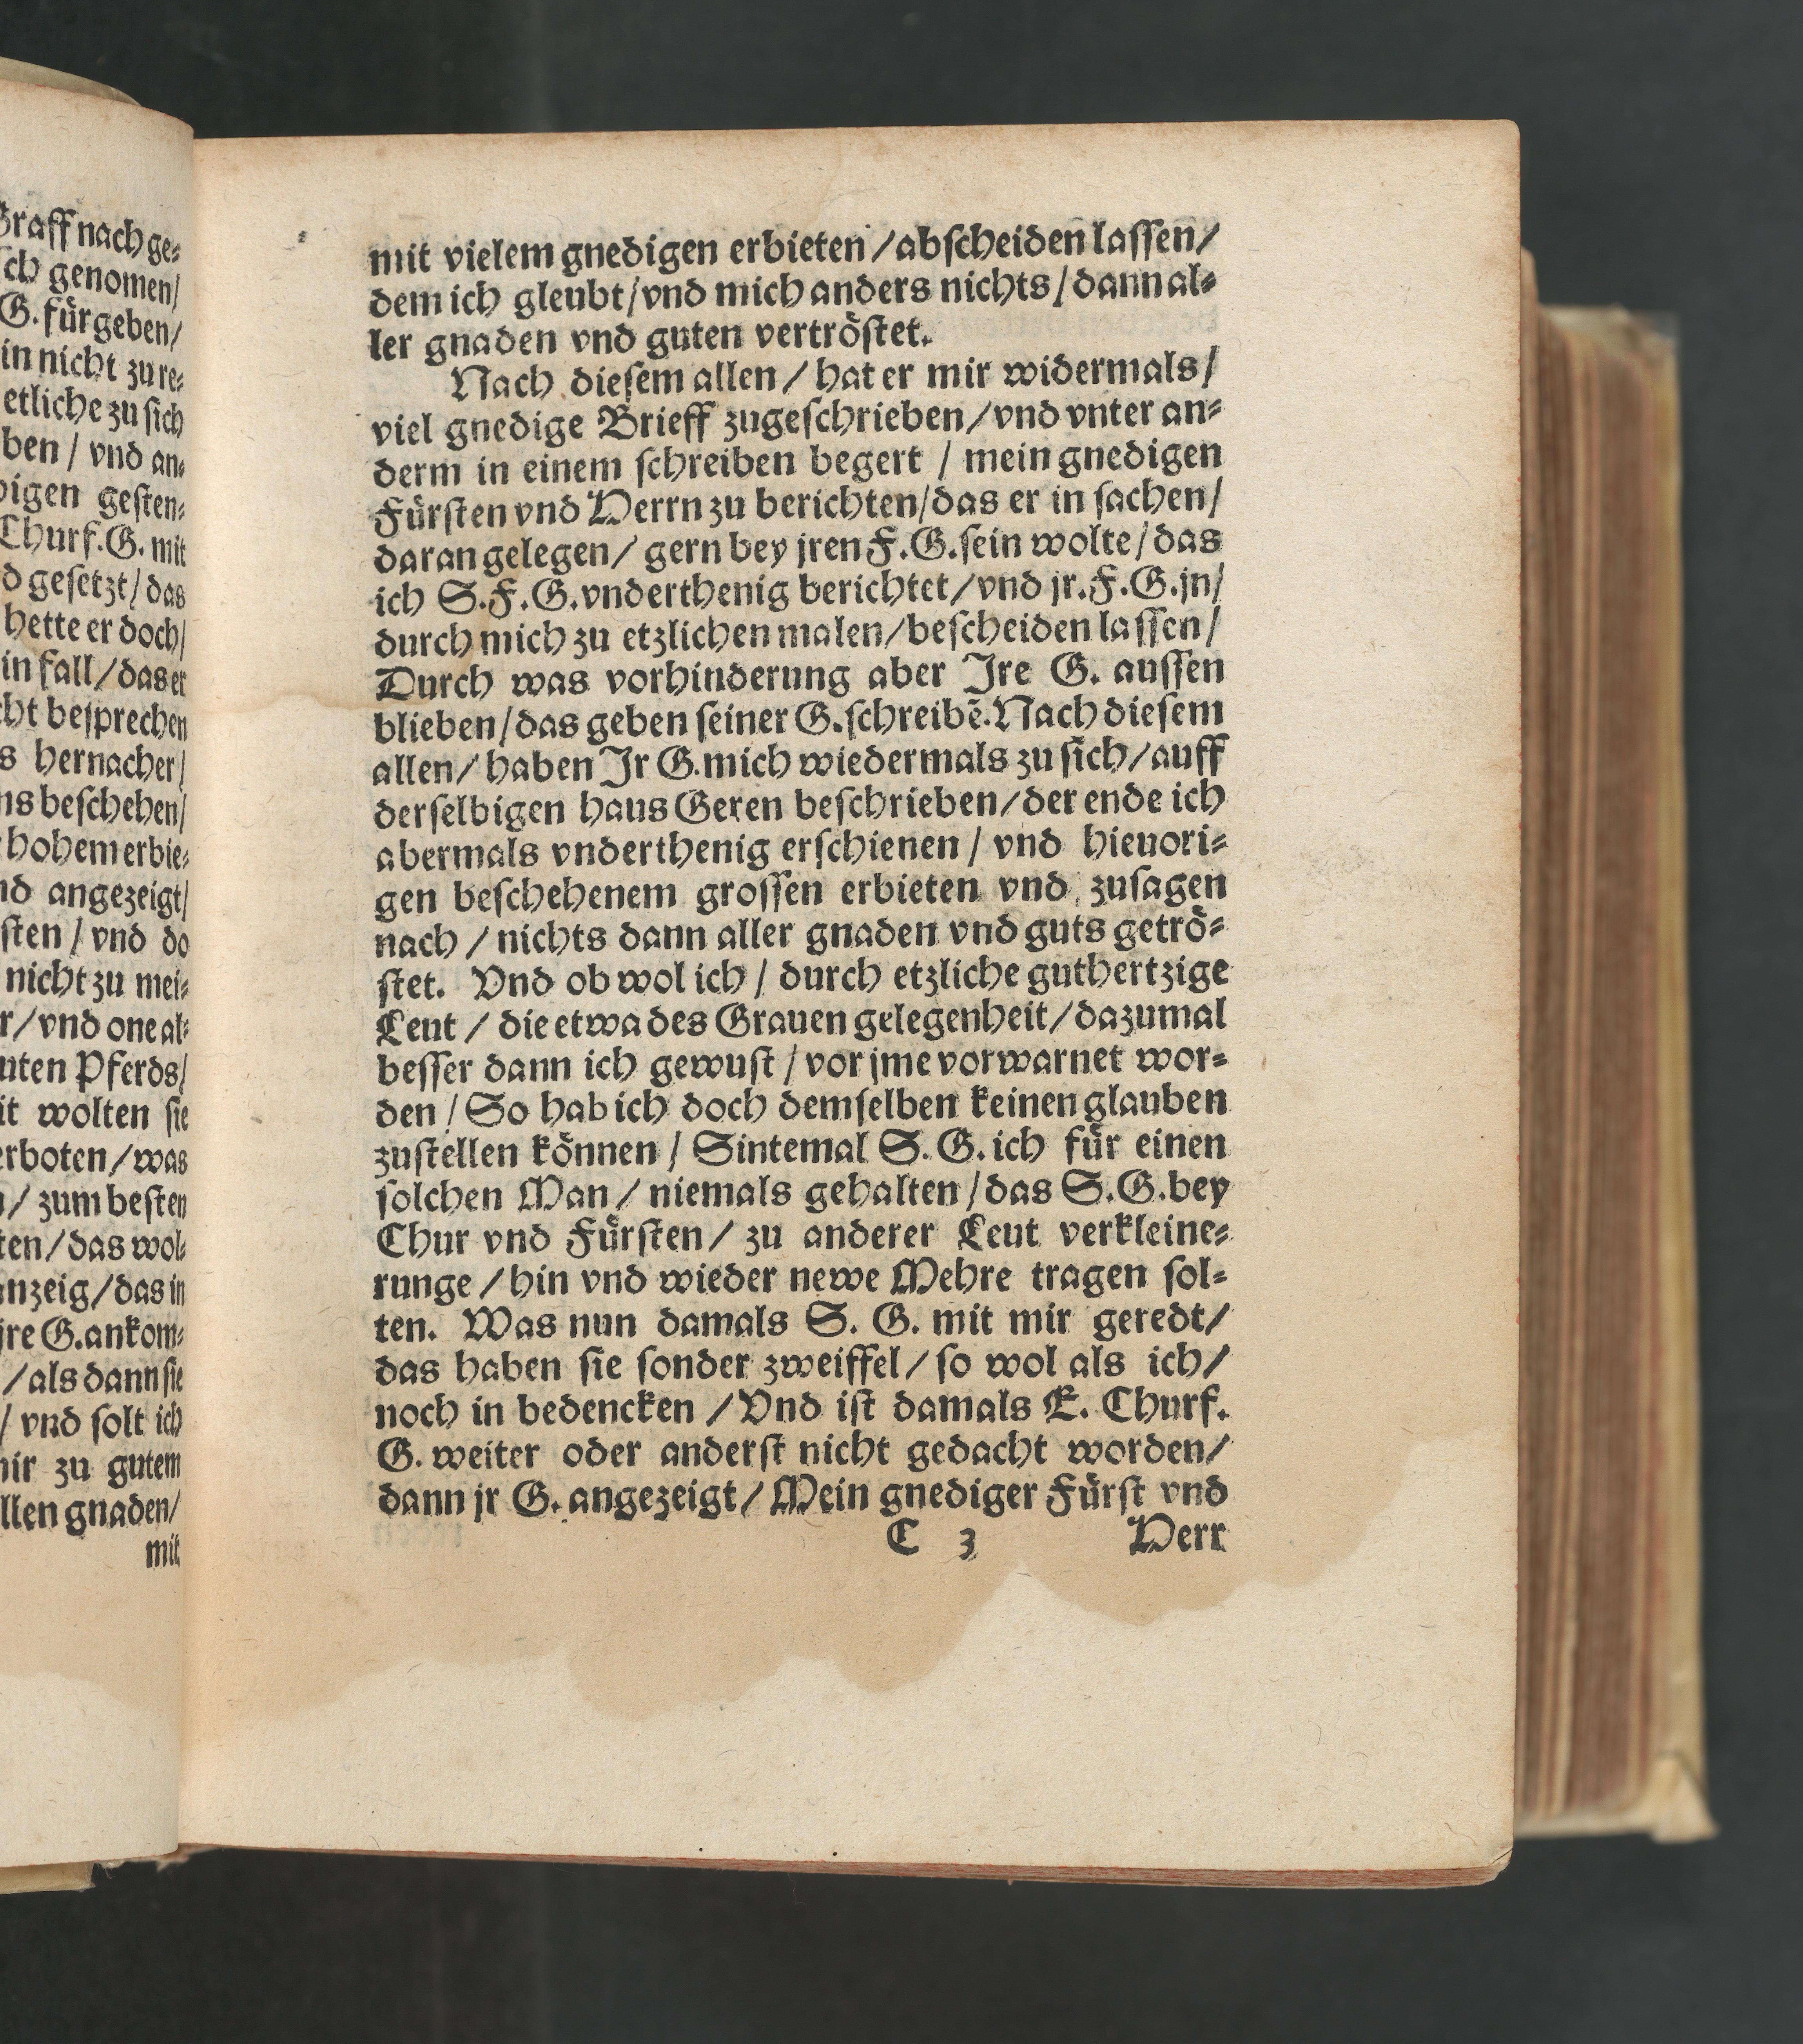 Graff nach ge⸗
sch genomen/
G. fürgeben/
in nicht zu re⸗
etliche zu sich
ben/ vnd an⸗
bigen gesten⸗
Churf. G. mit
d gesetzt/ das
hette er doch/
in fall/ das er
cht besprechen
s hernacher/
ns beschehen/
hohem erbie⸗
nd angezeigt/
sten/ vnd do
nicht zu mei⸗
r/ vnd one al⸗
uten Pferds/
it wolten sie
erboten/ was
/ zum besten
ten/ das wol⸗
anzeig/ das in
jre G. ankom⸗
/ als dann sie
/ vnd solt ich
mir zu gutem
llen gnaden/
mit
mit vielem gnedigen erbieten/ abscheiden lassen/
dem ich gleubt/ vnd mich anders nichts/ dann al⸗
ler gnaden vnd guten vertröstet.
Nach diesem allen/ hat er mir widermals/
viel gnedige Brieff zugeschrieben/ vnd vnter an⸗
derm in einem schreiben begert/ mein gnedigen
Fürsten vnd Herrn zu berichten/ das er in sachen/
daran gelegen/ gern bey jren F. G. sein wolte/ das
ich S. F. G. vnderthenig berichtet/ vnd jr. F. G. jn/
durch mich zu etzlichen malen/ bescheiden lassen/
Durch was vorhinderung aber Ire G. aussen
blieben/ das geben seiner G. schreibẽ. Nach diesem
allen/ haben Ir G. mich wiedermals zu sich/ auff
derselbigen haus Geren beschrieben/ der ende ich
abermals vnderthenig erschienen/ vnd hieuori⸗
gen beschehenem grossen erbieten vnd zusagen
nach/ nichts dann aller gnaden vnd guts getrö⸗
stet. Vnd ob wol ich/ durch etzliche guthertzige
Leut/ die etwa des Grauen gelegenheit/ dazumal
besser dann ich gewust/ vor jme vorwarnet wor⸗
den/ So hab ich doch demselben keinen glauben
zustellen können/ Sintemal S. G. ich für einen
solchen Man/ niemals gehalten/ das S. G. bey
Chur vnd Fürsten/ zu anderer Leut verkleine⸗
runge/ hin vnd wieder newe Mehre tragen sol⸗
ten. Was nun damals S. G. mit mir geredt/
das haben sie sonder zweiffel/ so wol als ich/
noch in bedencken/ Vnd ist damals E. Churf.
G. weiter oder anderst nicht gedacht worden/
dann jr G. angezeigt/ Mein gnediger Fürst vnd
C 3 Herr